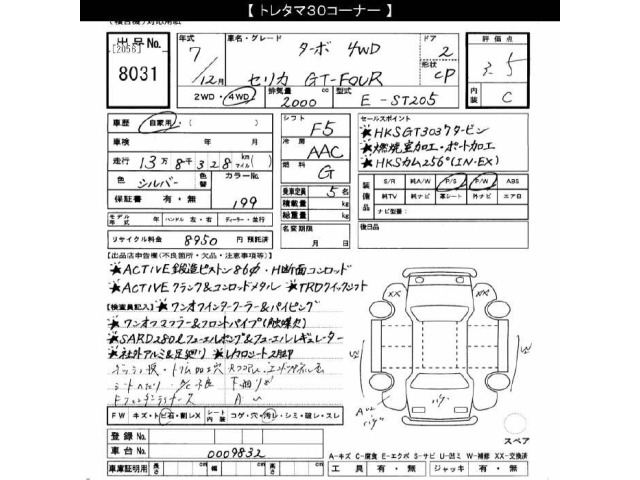 【 トレタマ30コーナー 】
出品No.
[2056]
8031
年式
7
12月
車名・グレード
ターボ 4WD
セリカ GT-FOUR
ドア
2
形状
CP
評価点
3.5
内装
C
2WD・4WD
排気量
2000 cc
型式
E-ST205
車歴
自家用・( )
車検 年 月
走行 13万8千328 km マイル
色 シルバー
色替
カラーNo.
199
保証書 有・無
モデル年式 年
ハンドル 左・右
ディーラー・並行
リサイクル料金 8950 円 預託済
シフト
F5
冷房
AAC
燃料
G
乗車定員 5 名
積載量 kg
総重量 kg
名変期限
月 日
セールスポイント
★HKSGT3037タービン
★燃焼室加工・ポート加工
★HKSカム256°(IN-EX)
装備品
S/R 純A/W P/S P/W ABS
純TV 純ナビ 革シート 外ナビ エアロ
ナビ型番:
後日品
【出品店申告欄(不良箇所・欠品・注意事項等)】
★ACTIVE鍛造ピストン86φ・H断面コンロッド
★ACTIVEクランク&コンロッドメタル ★TRDクイックシフト
【検査員記入】★ワンオフインタークーラー&パイピング
★ワンオフマフラー&フロントパイプ(触媒欠)
★SARD280ℓフューエルポンプ&フューエルレギュレーター
★社外アルミ&足廻り ★レカロシート2脚
下廻りサビ
FW キズ・トビ石・割レX
シート内装 コゲ・穴・汚レ・シミ・破レ・スレ
登録No.
車台No.
0009832
車庫証明用 長さ cm 幅 cm 高さ cm
XX
XX
スペア
A-キズ C-腐食 E-エクボ S-サビ U-凹ミ W-補修 XX-交換済
工具 有・無 ジャッキ 有・無